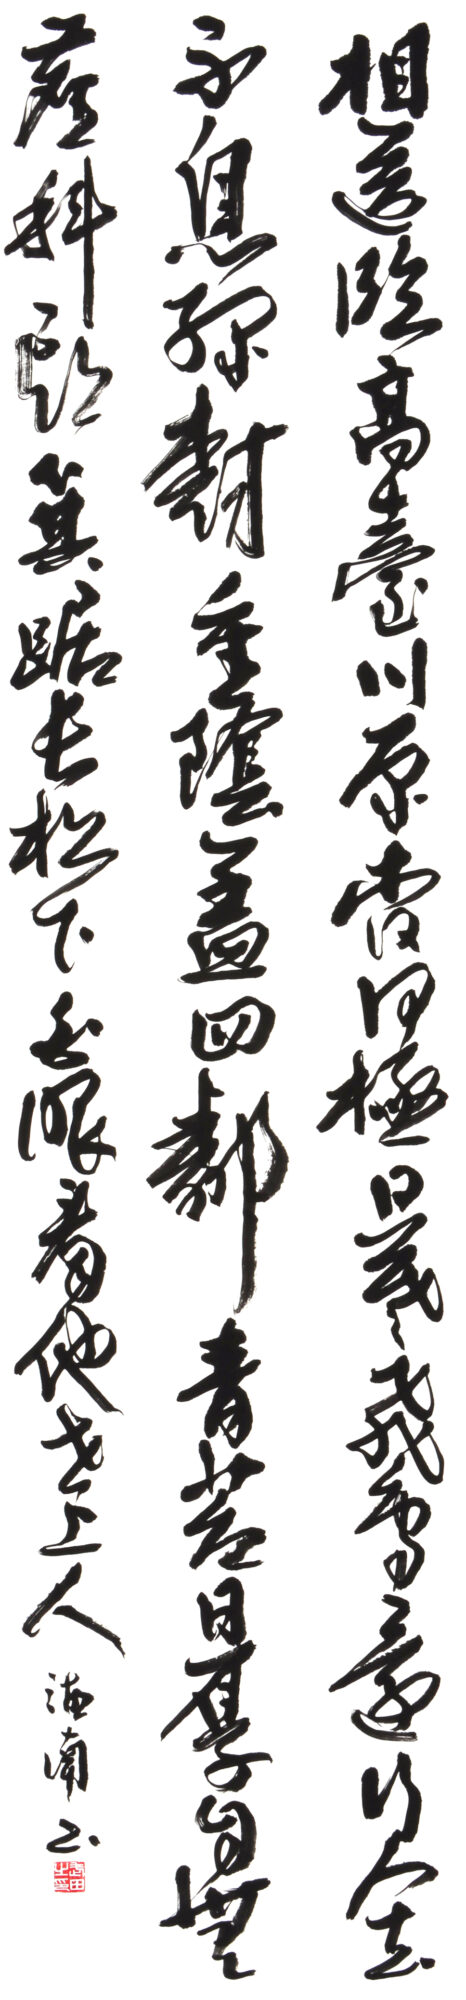 相送臨高臺川原杳何極日暮飛鳥還行人去
不息綠樹重陰蓋四鄰青苔日厚自無
塵科頭箕踞長松下白眼看他世上人
書